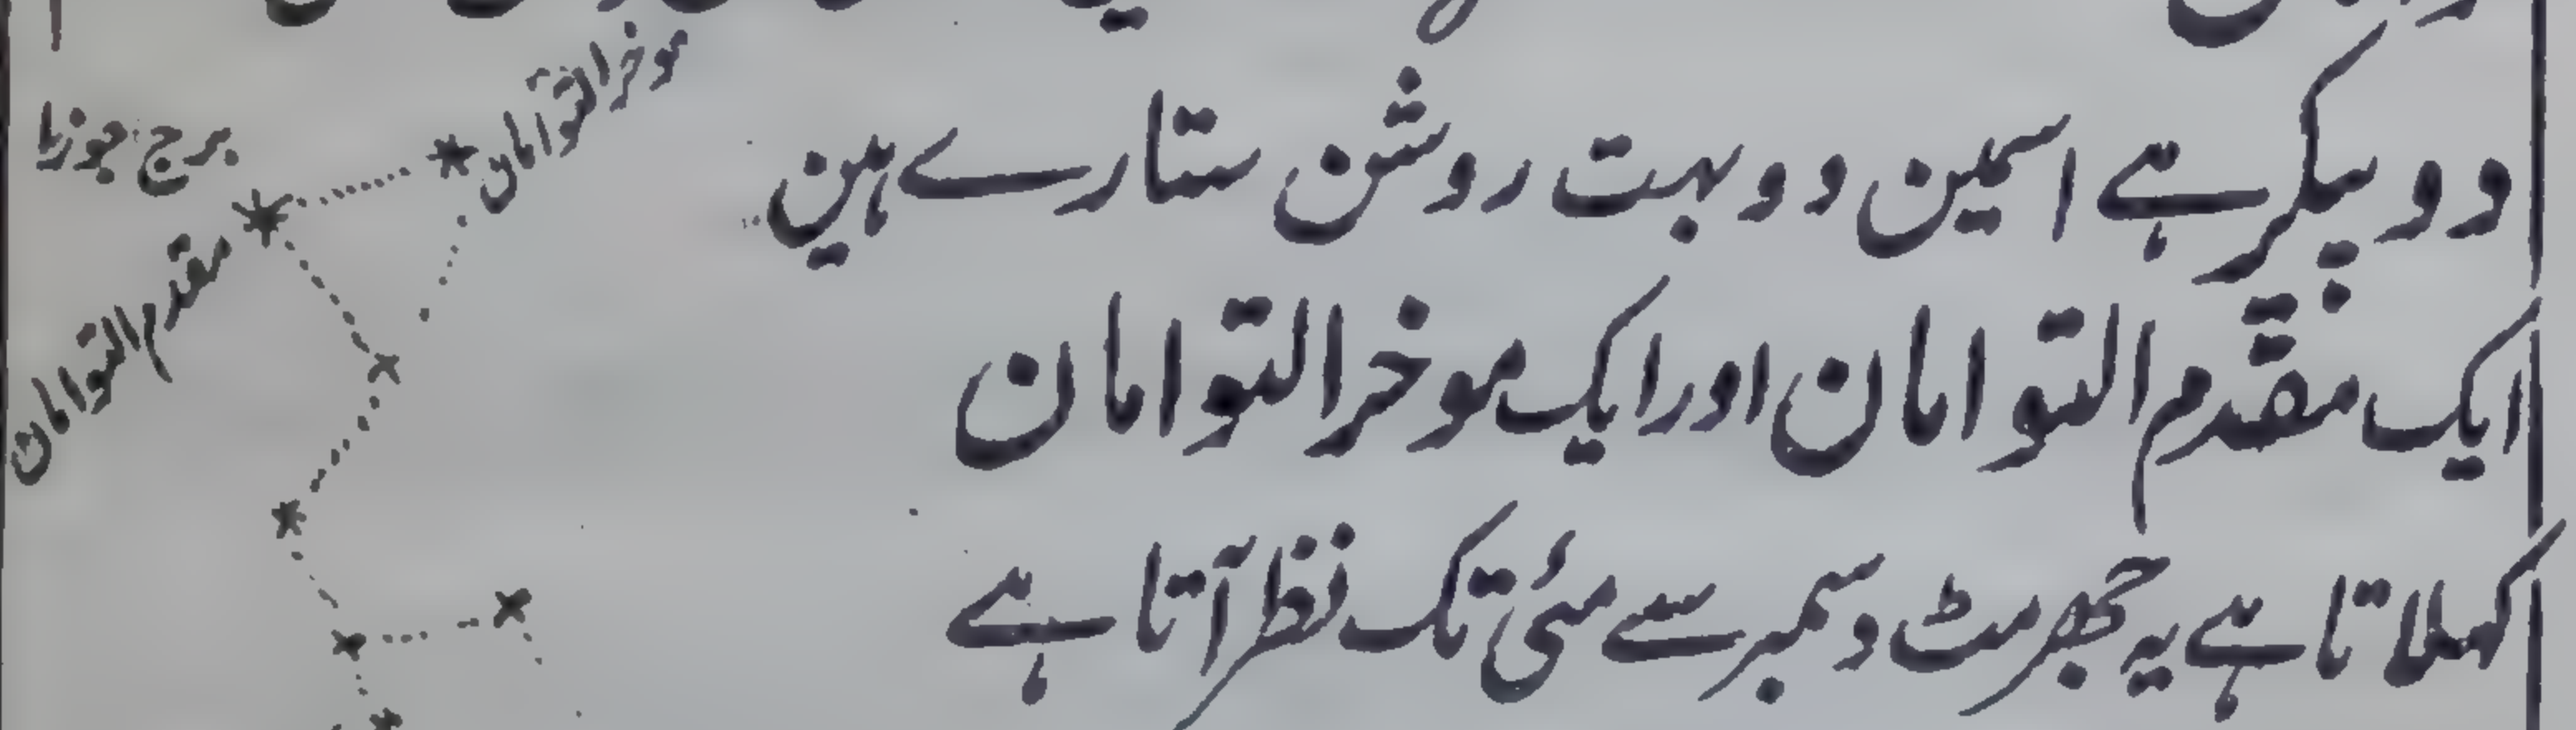 دو پیکر ہے اسمین دو بہت روشن ستارے ہین
ایک مقدم التوامان اور ایک موخر التوامان
کہلاتا ہے یہ جھرمٹ دسمبر سے مئی تک نظر آتا ہے
موخر التوامان
برج جوزا
مقدم التوامان